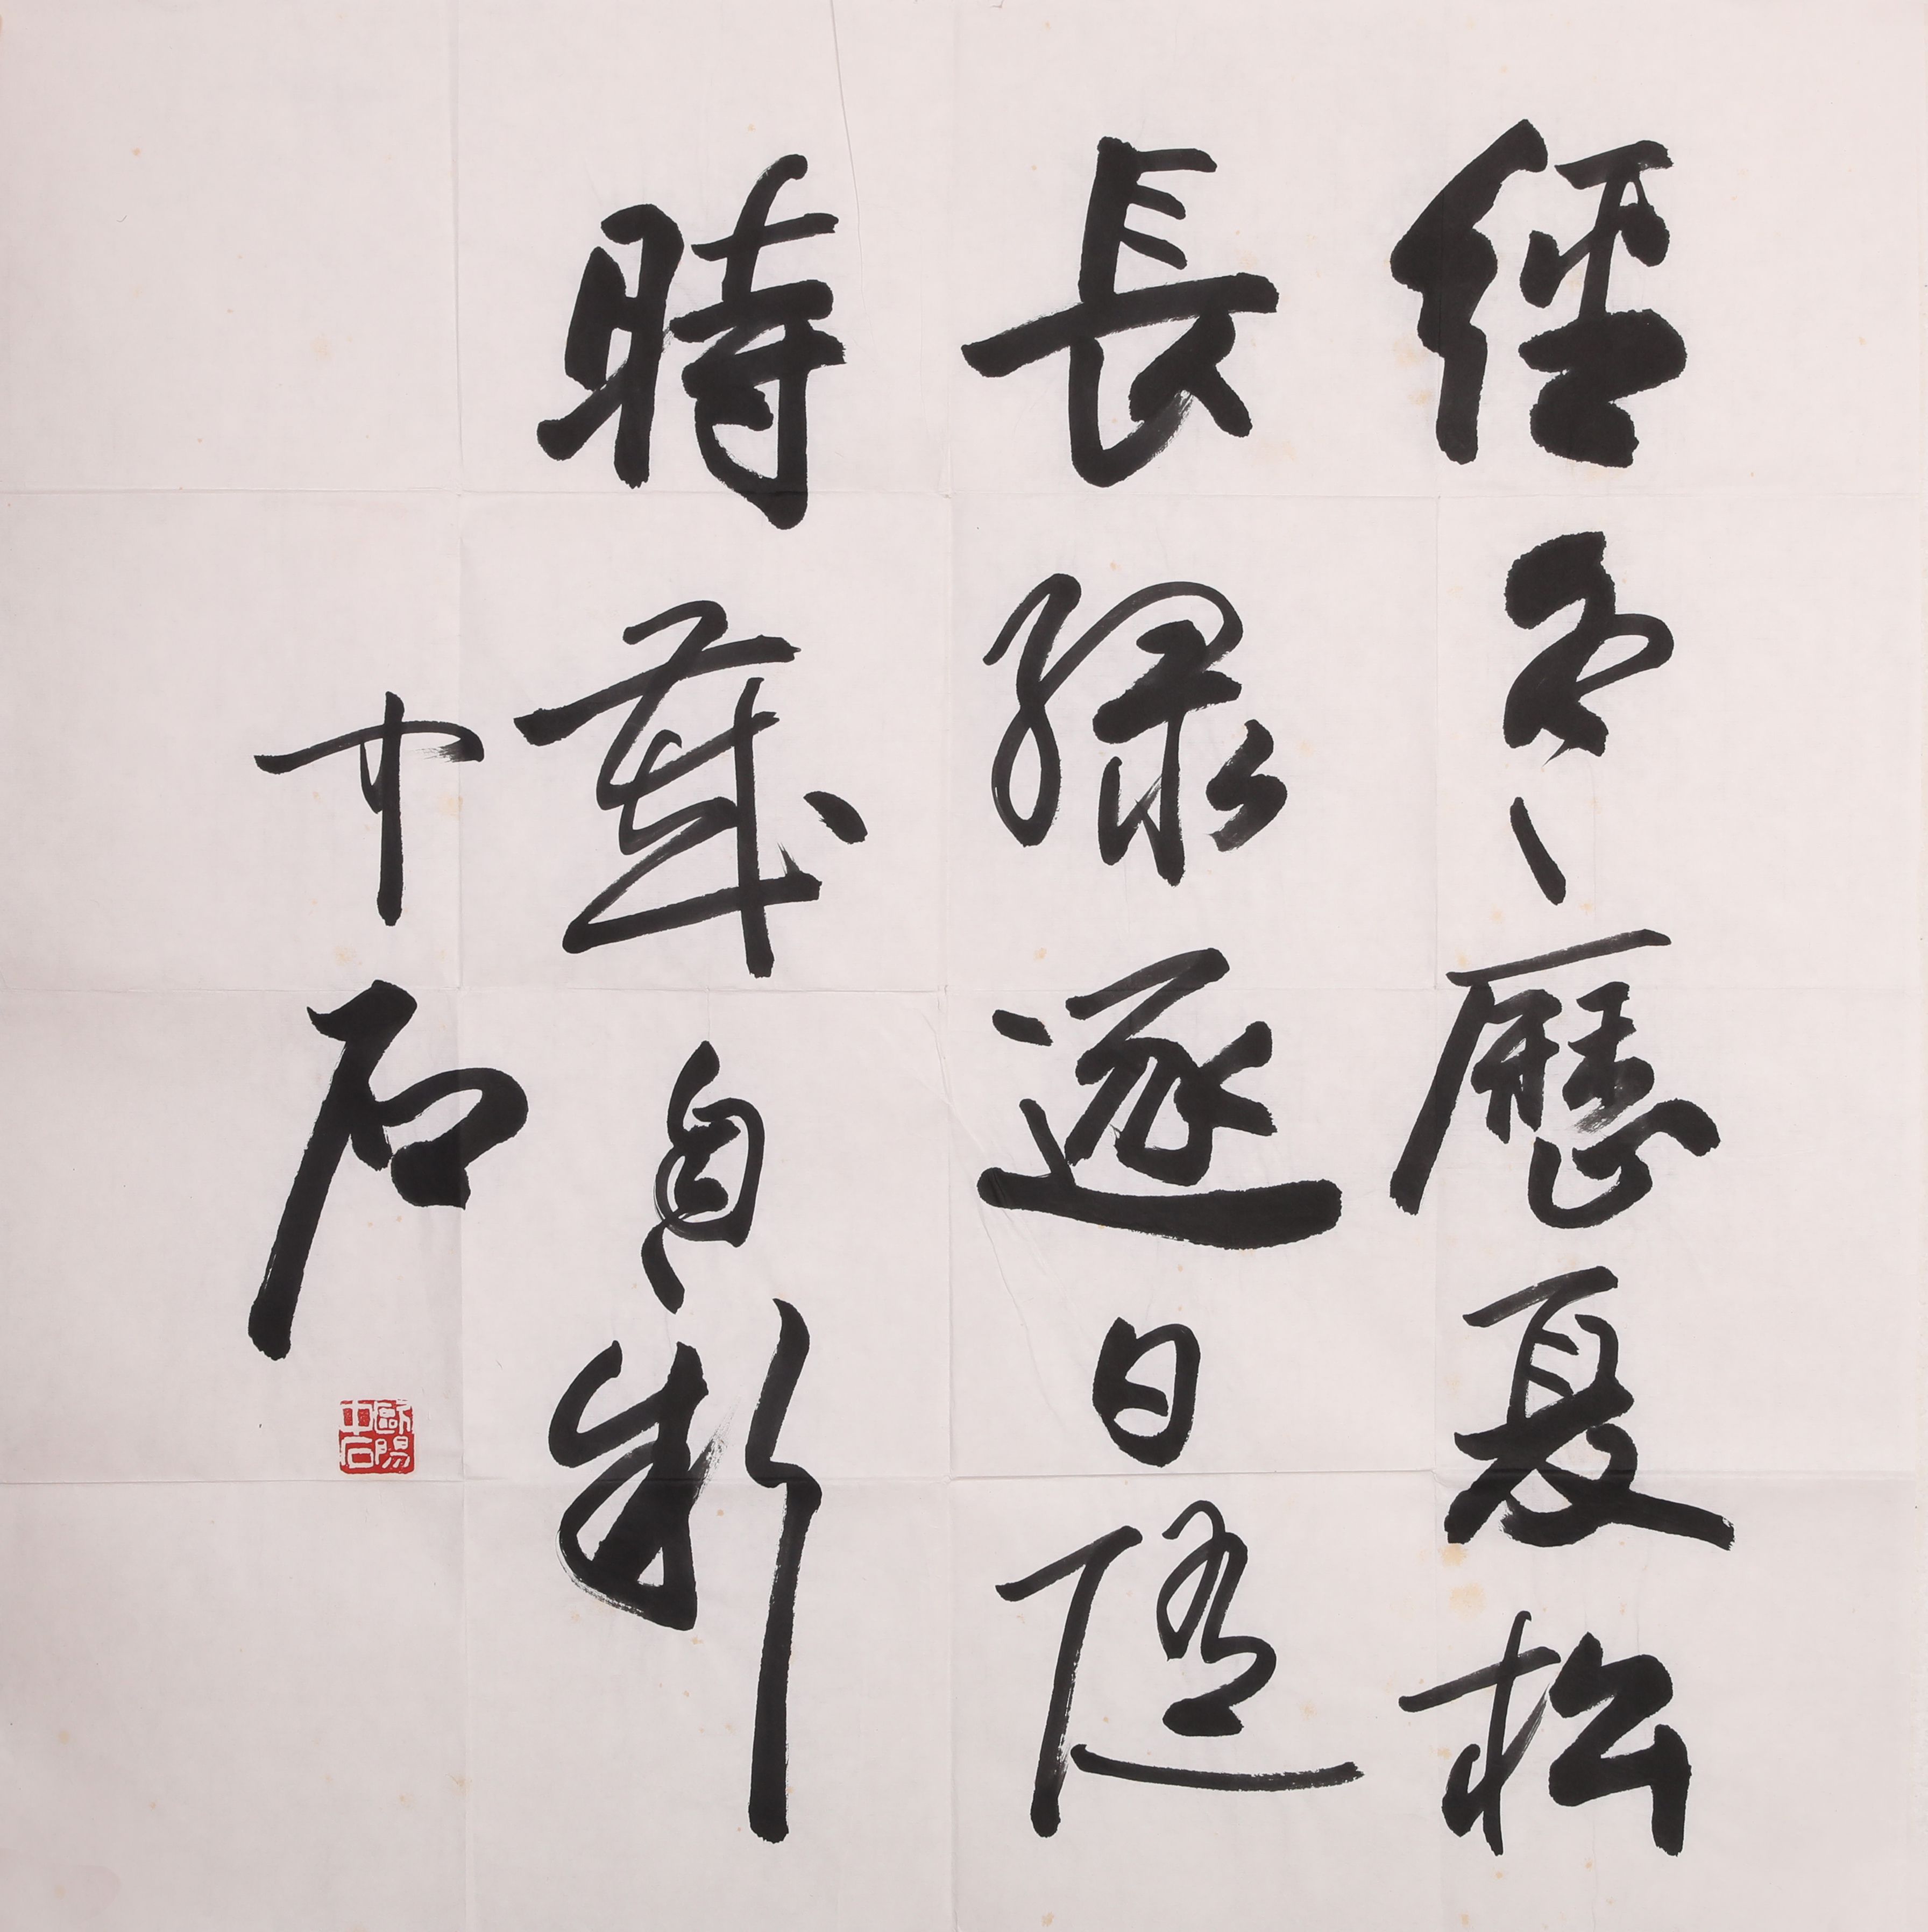 經冬歷夏松
長緑逐日隨
時歲自新
中石
歐陽中石